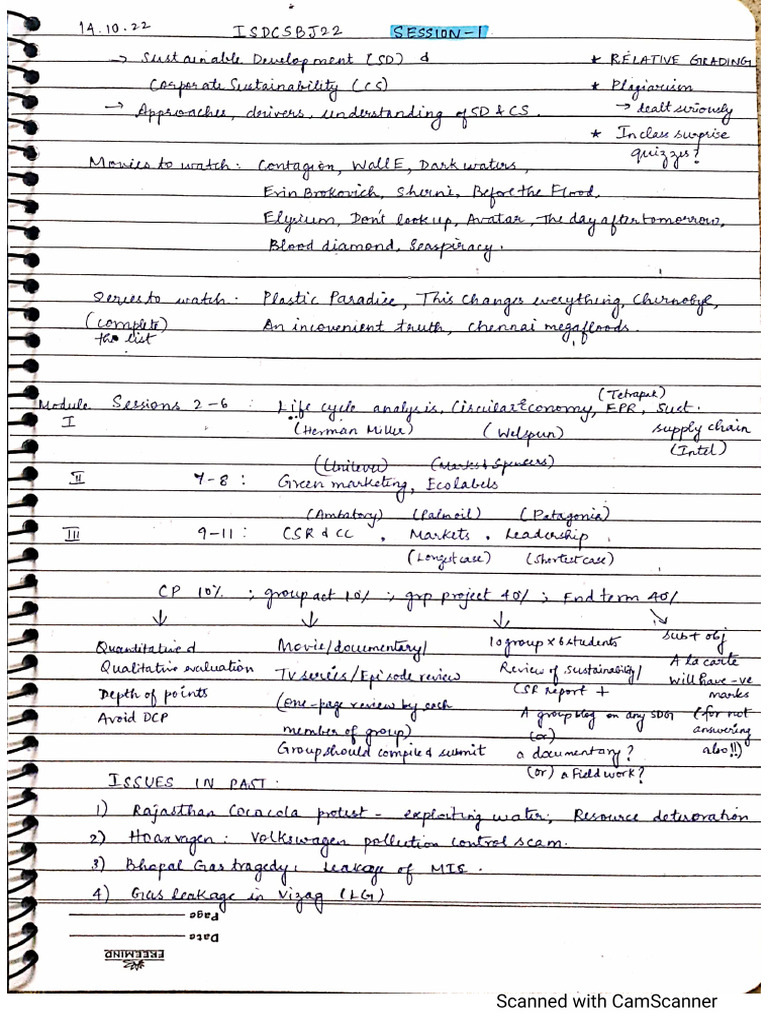 14.10.22 ISDCSBJ22 SESSION-1
→ Sustainable Development (SD) &
Corporate Sustainability (CS)
→ Approaches, derivers, understanding of SD & CS.
* RELATIVE GRADING
* Plagiarism
→ dealt seriously
* In class surprise
quizzes?
Movies to watch: Contagion, Wall E, Dark waters,
Erin Brokovich, Sherni, Before the Flood,
Elysium, Don't look up, Avatar, The day after tomorrow,
Blood diamond, Seaspiracy.
Series to watch. Plastic Paradise, This changes everything, Chernobyl,
(complete) An inconvenient truth, Chennai megafloods.
the list
(Tetrapak)
Module Sessions 2-6 : Life cycle analysis, Circular Economy, EPR, Sust.
I (Herman Miller) (Welspun) supply chain
(Intel)
(Unilever) (Marks & Spencers)
II 7-8: Green marketing, Ecolabels
(Ambatory) (Palmoil) (Patagonia)
III 9-11: CSR & CC , Markets . Leadership
(Longest case) (Shortest case)
CP 10% ; group act 10% ; grp project 40% ; End term 40%
Quantitative &
Qualitative evaluation
Depth of points
Avoid DCP
Movie/documentary/
TV series/Episode review
(one-page review by each
member of group)
Group should compile & submit
10 group x 6 students
Review of sustainability/
CSR report +
A group blog on any SDG
(or)
a documentary?
(or) a Field work?
sub + obj
A la carte
will have -ve
marks
(for not
answering
also!!)
ISSUES IN PAST.
1) Rajasthan Cocacola protest - exploiting water, Resource deteroration
2) Hoaxvagen: Volkswagen pollution control scam.
3) Bhopal Gas tragedy: Leakage of MIC.
4) Gas leakage in Vizag (LG)
Page
Date
FREEMIND
Scanned with CamScanner